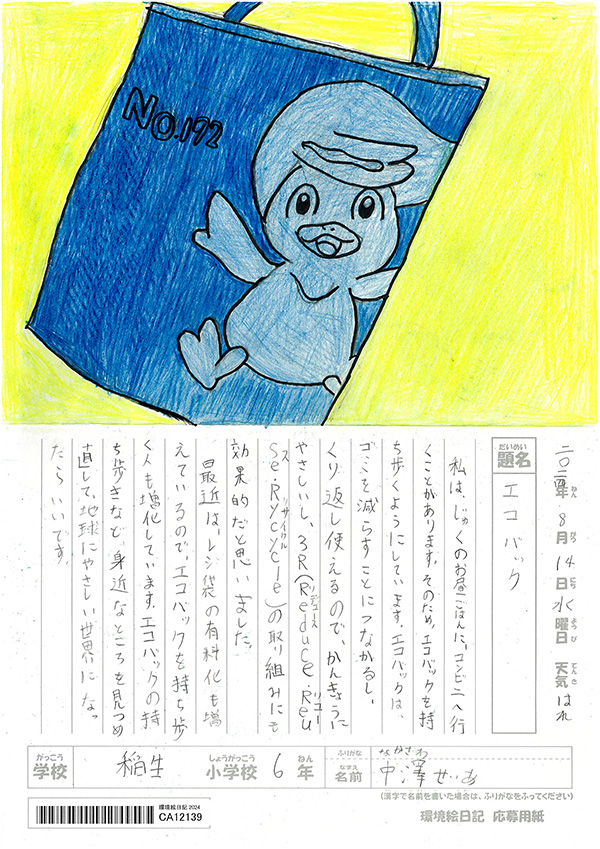 No.192
二〇二四年 8月 14日 水曜日 天気 はれ
ねん がつ にち ようび てんき
だいめい
題名
エコバック
私は、じゅくのお昼ごはんに、コンビニへ行
くことがあります。そのため、エコバックを持
ち歩くようにしています。エコバックは、
ゴミを減らすことにつながるし、
くり返し使えるので、かんきょうに
やさしいし、3R(Reduce・Reu
リデュース リユー
se・Rycycle)の取り組みにも
ス リサイクル
効果的だと思いました。
最近は、レジ袋の有料化も増
えているので、エコバックを持ち歩
く人も増化しています。エコバックの持
ち歩きなど身近なところを見つめ
直して、地球にやさしい世界になっ
たらいいです。
がっこう
学校
稲生
しょうがっこう
小学校
6
ねん
年
ふりがな
なかざわ
なまえ
名前
中澤せいあ
(漢字で名前を書いた場合は、ふりがなをふってください)
環境絵日記 2024
CA12139
環境絵日記 応募用紙